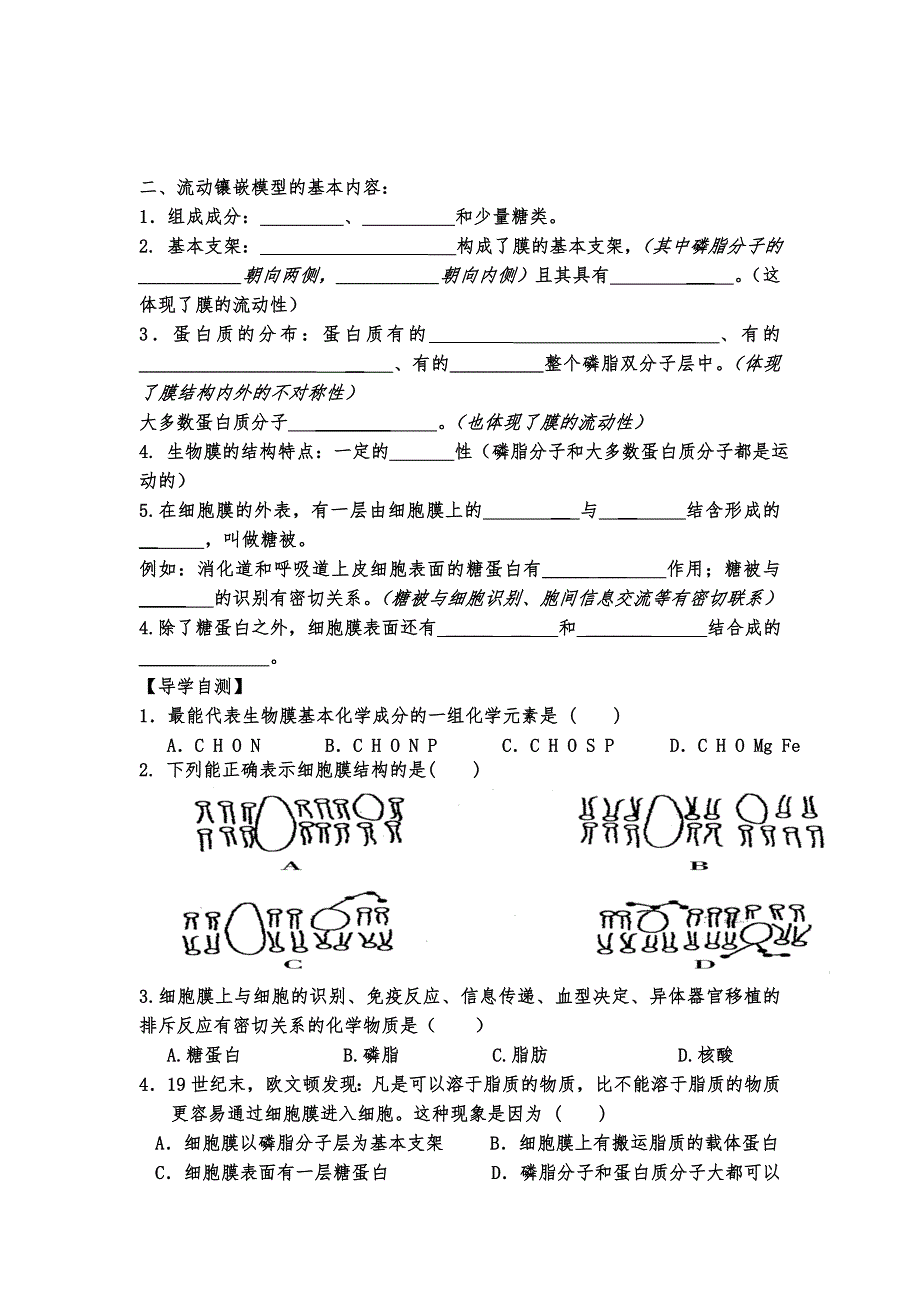 二、流动镶嵌模型的基本内容：
1．组成成分：_________、__________和少量糖类。
2. 基本支架：_____________________构成了膜的基本支架，（其中磷脂分子的
___________朝向两侧，___________朝向内侧）且其具有_____________。（这
体现了膜的流动性）
3．蛋白质的分布：蛋白质有的_______________________________、有的
___________________________、有的__________整个磷脂双分子层中。（体现
了膜结构内外的不对称性）
大多数蛋白质分子________________。（也体现了膜的流动性）
4. 生物膜的结构特点：一定的_______性（磷脂分子和大多数蛋白质分子都是运
动的）
5.在细胞膜的外表，有一层由细胞膜上的__________与_________结含形成的
_______，叫做糖被。
例如：消化道和呼吸道上皮细胞表面的糖蛋白有_____________作用；糖被与
________的识别有密切关系。（糖被与细胞识别、胞间信息交流等有密切联系）
4.除了糖蛋白之外，细胞膜表面还有_____________和______________结合成的
______________。
【导学自测】
1．最能代表生物膜基本化学成分的一组化学元素是 (　　)
A．C H O N　B．C H O N P　C．C H O S P　D．C H O Mg Fe
2. 下列能正确表示细胞膜结构的是(　　)
A　B
C　D
3.细胞膜上与细胞的识别、免疫反应、信息传递、血型决定、异体器官移植的
排斥反应有密切关系的化学物质是（　　）
A.糖蛋白　B.磷脂　C.脂肪　D.核酸
4．19世纪末，欧文顿发现：凡是可以溶于脂质的物质，比不能溶于脂质的物质
更容易通过细胞膜进入细胞。这种现象是因为 (　　)
A．细胞膜以磷脂分子层为基本支架　B．细胞膜上有搬运脂质的载体蛋白
C．细胞膜表面有一层糖蛋白　D．磷脂分子和蛋白质分子大都可以